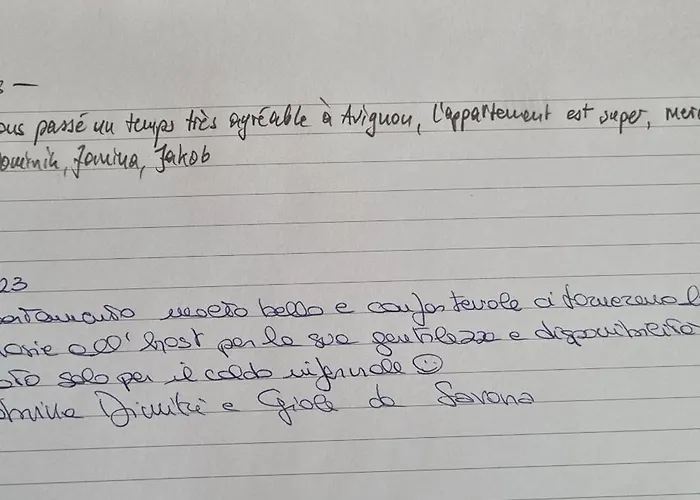 3 —
ous passé un temps très agréable à Avignon, l'appartement est super, mer
Jomina, Jakob
23
molto bello e confortevole ci torneremo
all'host per la sua gentilezza e disponibilità
solo per il caldo infernale ☺
Dimitri e Giole da Savona